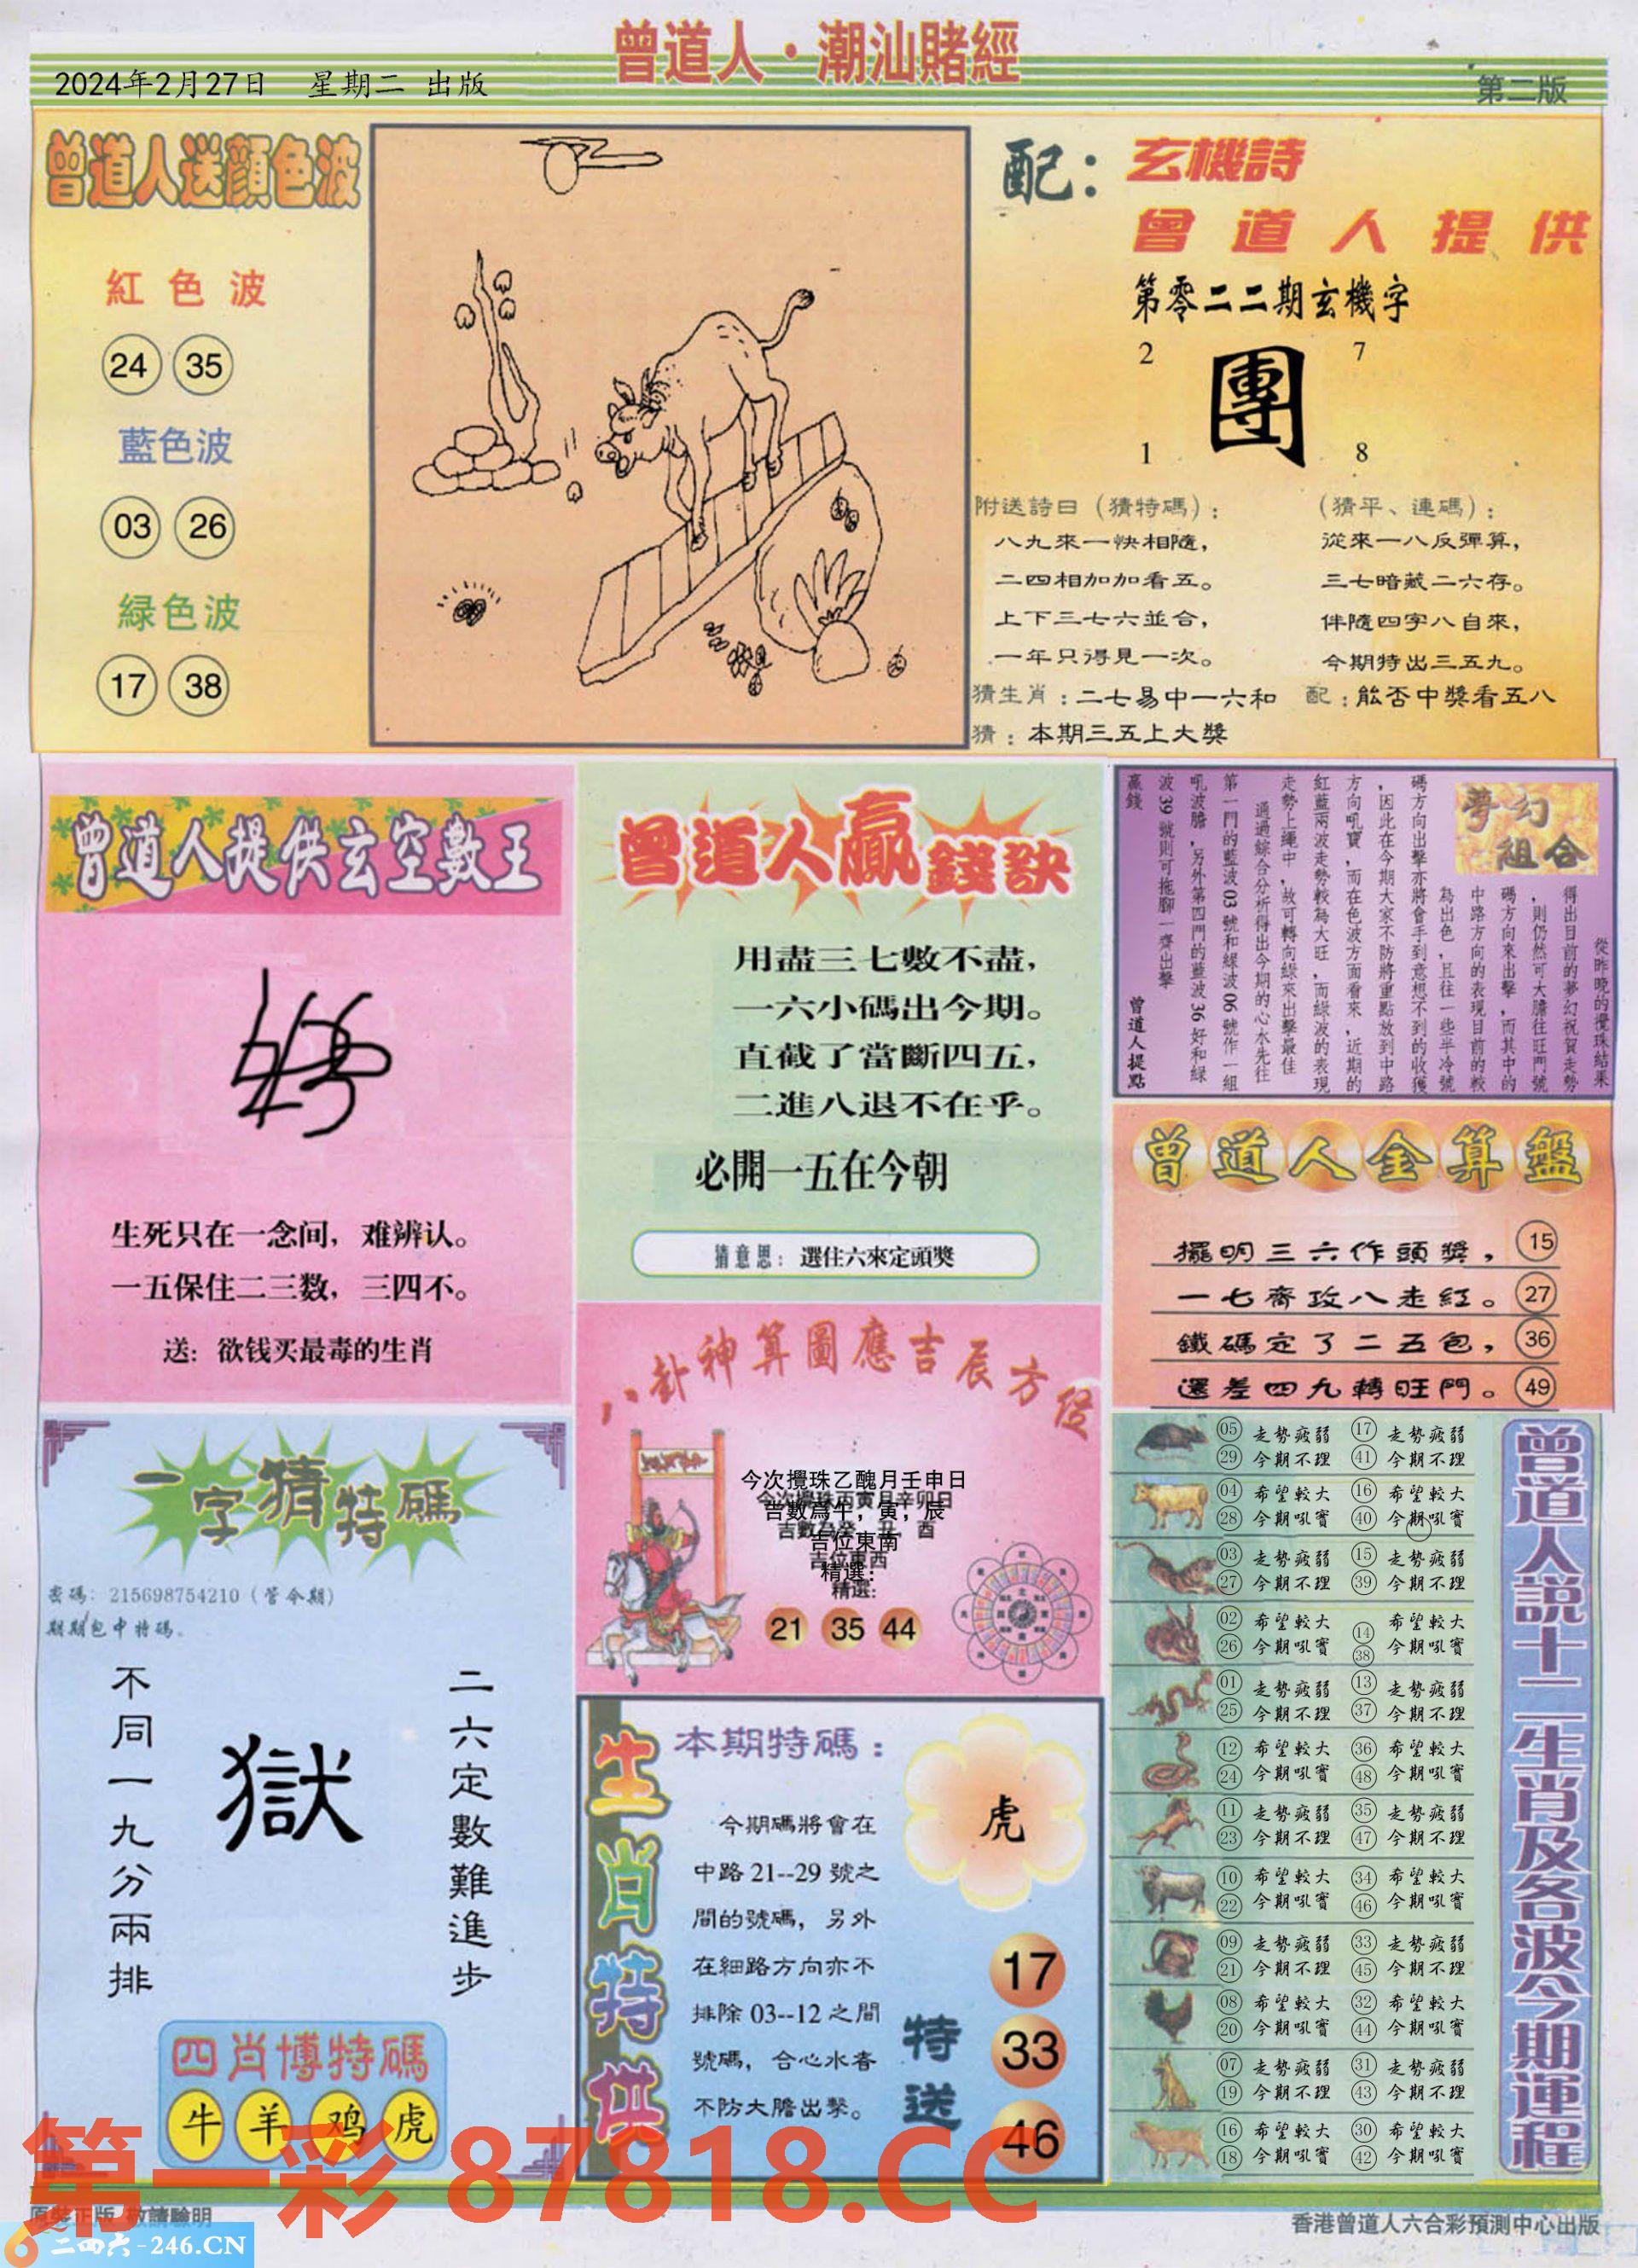 曾道人·潮汕賭經
2024年2月27日 星期二 出版
第二版
曾道人送顔色波
紅色波
24 35
藍色波
03 26
緑色波
17 38
配：玄機詩
曾道人提供
第零二二期玄機字
2 7
團
1 8
附送詩曰（猜特碼）：
八九來一快相隨，
二四相加加看五。
上下三七六並合，
一年只得見一次。
（猜平、連碼）：
從來一八反彈算，
三七暗藏二六存。
伴隨四字八自來，
今期特出三五九。
猜生肖：二七易中一六和
配：能否中獎看五八
猜：本期三五上大獎
曾道人提供玄空數王
生死只在一念间，难辨认。
一五保住二三数，三四不。
送：欲钱买最毒的生肖
曾道人贏錢訣
用盡三七數不盡，
一六小碼出今期。
直截了當斷四五，
二進八退不在乎。
必開一五在今朝
猜意思：選住六來定頭獎
夢幻組合
從昨晚的攪珠結果
得出目前的夢幻祝賀走勢
，則仍然可大膽往旺門號
碼方向來出擊，而其中的
中路方向的表現目前的較
為出色，且往一些半冷號
碼方向出擊亦將會手到意想不到的收獲
，因此在今期大家不防將重點放到中路
方向吼寶，而在色波方面看來，近期的
紅藍兩波走勢較為大旺，而綠波的表現
走勢上繩中，故可轉向綠來出擊最佳
通過綜合分析得出今期的心水先往
第一門的藍波03號和綠波06號作一組
吼波膽，另外第四門的藍波36好和綠
波39號則可拖腳一齊出擊
贏錢
曾道人提點
曾道人金算盤
擺明三六作頭獎， 15
一七齊攻八走紅。 27
鐵碼定了二五包， 36
還差四九轉旺門。 49
八卦神算圖應吉辰方位
今次攪珠乙醜月壬申日
今次攪珠丙寅月辛卯日
吉數爲午，寅，辰
吉數為癸，丑，酉
吉位東南
吉位東西
精選：
精選：
21 35 44
一字猜特碼
密碼：215698754210（管令期）
期期包中特碼。
二六定數難進步
獄
不同一九分兩排
四肖博特碼
牛 羊 鸡 虎
生肖特供
本期特碼：
虎
今期碼將會在
中路21--29號之
間的號碼，另外
在細路方向亦不
排除03--12之間
號碼，合心水者
不防大膽出擊。
特送
17
33
46
曾道人說十二生肖及各波今期運程
05 走勢疲弱 17 走勢疲弱
29 今期不理 41 今期不理
04 希望較大 16 希望較大
28 今期吼寶 40 今期吼寶
03 走勢疲弱 15 走勢疲弱
27 今期不理 39 今期不理
02 希望較大 14 希望較大
26 今期吼寶 38 今期吼寶
01 走勢疲弱 13 走勢疲弱
25 今期不理 37 今期不理
12 希望較大 36 希望較大
24 今期吼寶 48 今期吼寶
11 走勢疲弱 35 走勢疲弱
23 今期不理 47 今期不理
10 希望較大 34 希望較大
22 今期吼寶 46 今期吼寶
09 走勢疲弱 33 走勢疲弱
21 今期不理 45 今期不理
08 希望較大 32 希望較大
20 今期吼寶 44 今期吼寶
07 走勢疲弱 31 走勢疲弱
19 今期不理 43 今期不理
16 希望較大 30 希望較大
18 今期吼寶 42 今期吼寶
第一彩 87818.CC
原裝正版 敬請驗明
二四六-246.CN
香港曾道人六合彩預測中心出版